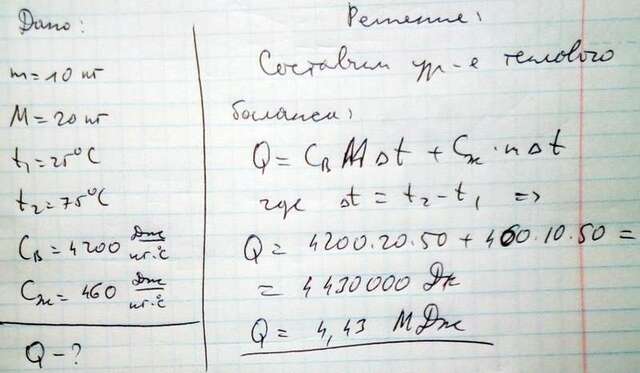 Дано:
m = 10 кг
M = 20 кг
t₁ = 25°C
t₂ = 75°C
Cв = 4200 Дж/кг·°C
Cж = 460 Дж/кг·°C
Q - ?
Решение:
Составим ур-е теплового
баланса:
Q = Cв M Δt + Cж · m Δt
где Δt = t₂ - t₁ =>
Q = 4200.20.50 + 460.10.50 =
= 4430000 Дж
Q = 4,43 МДж